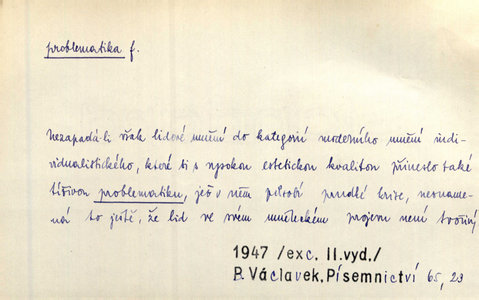 problematika f.
Nezapadá-li však lidové umění do kategorií moderního umění indi-
vidualistického, které ti s vysokou estetickou kvalitou přineslo také
tíživou problematiku, jež v něm působí prudké krise, nezname-
ná to ještě, že lid ve svém uměleckém projevu není tvořivý
1947 /exc. II.vyd./
B.Václavek,Písemnictví 65, 23